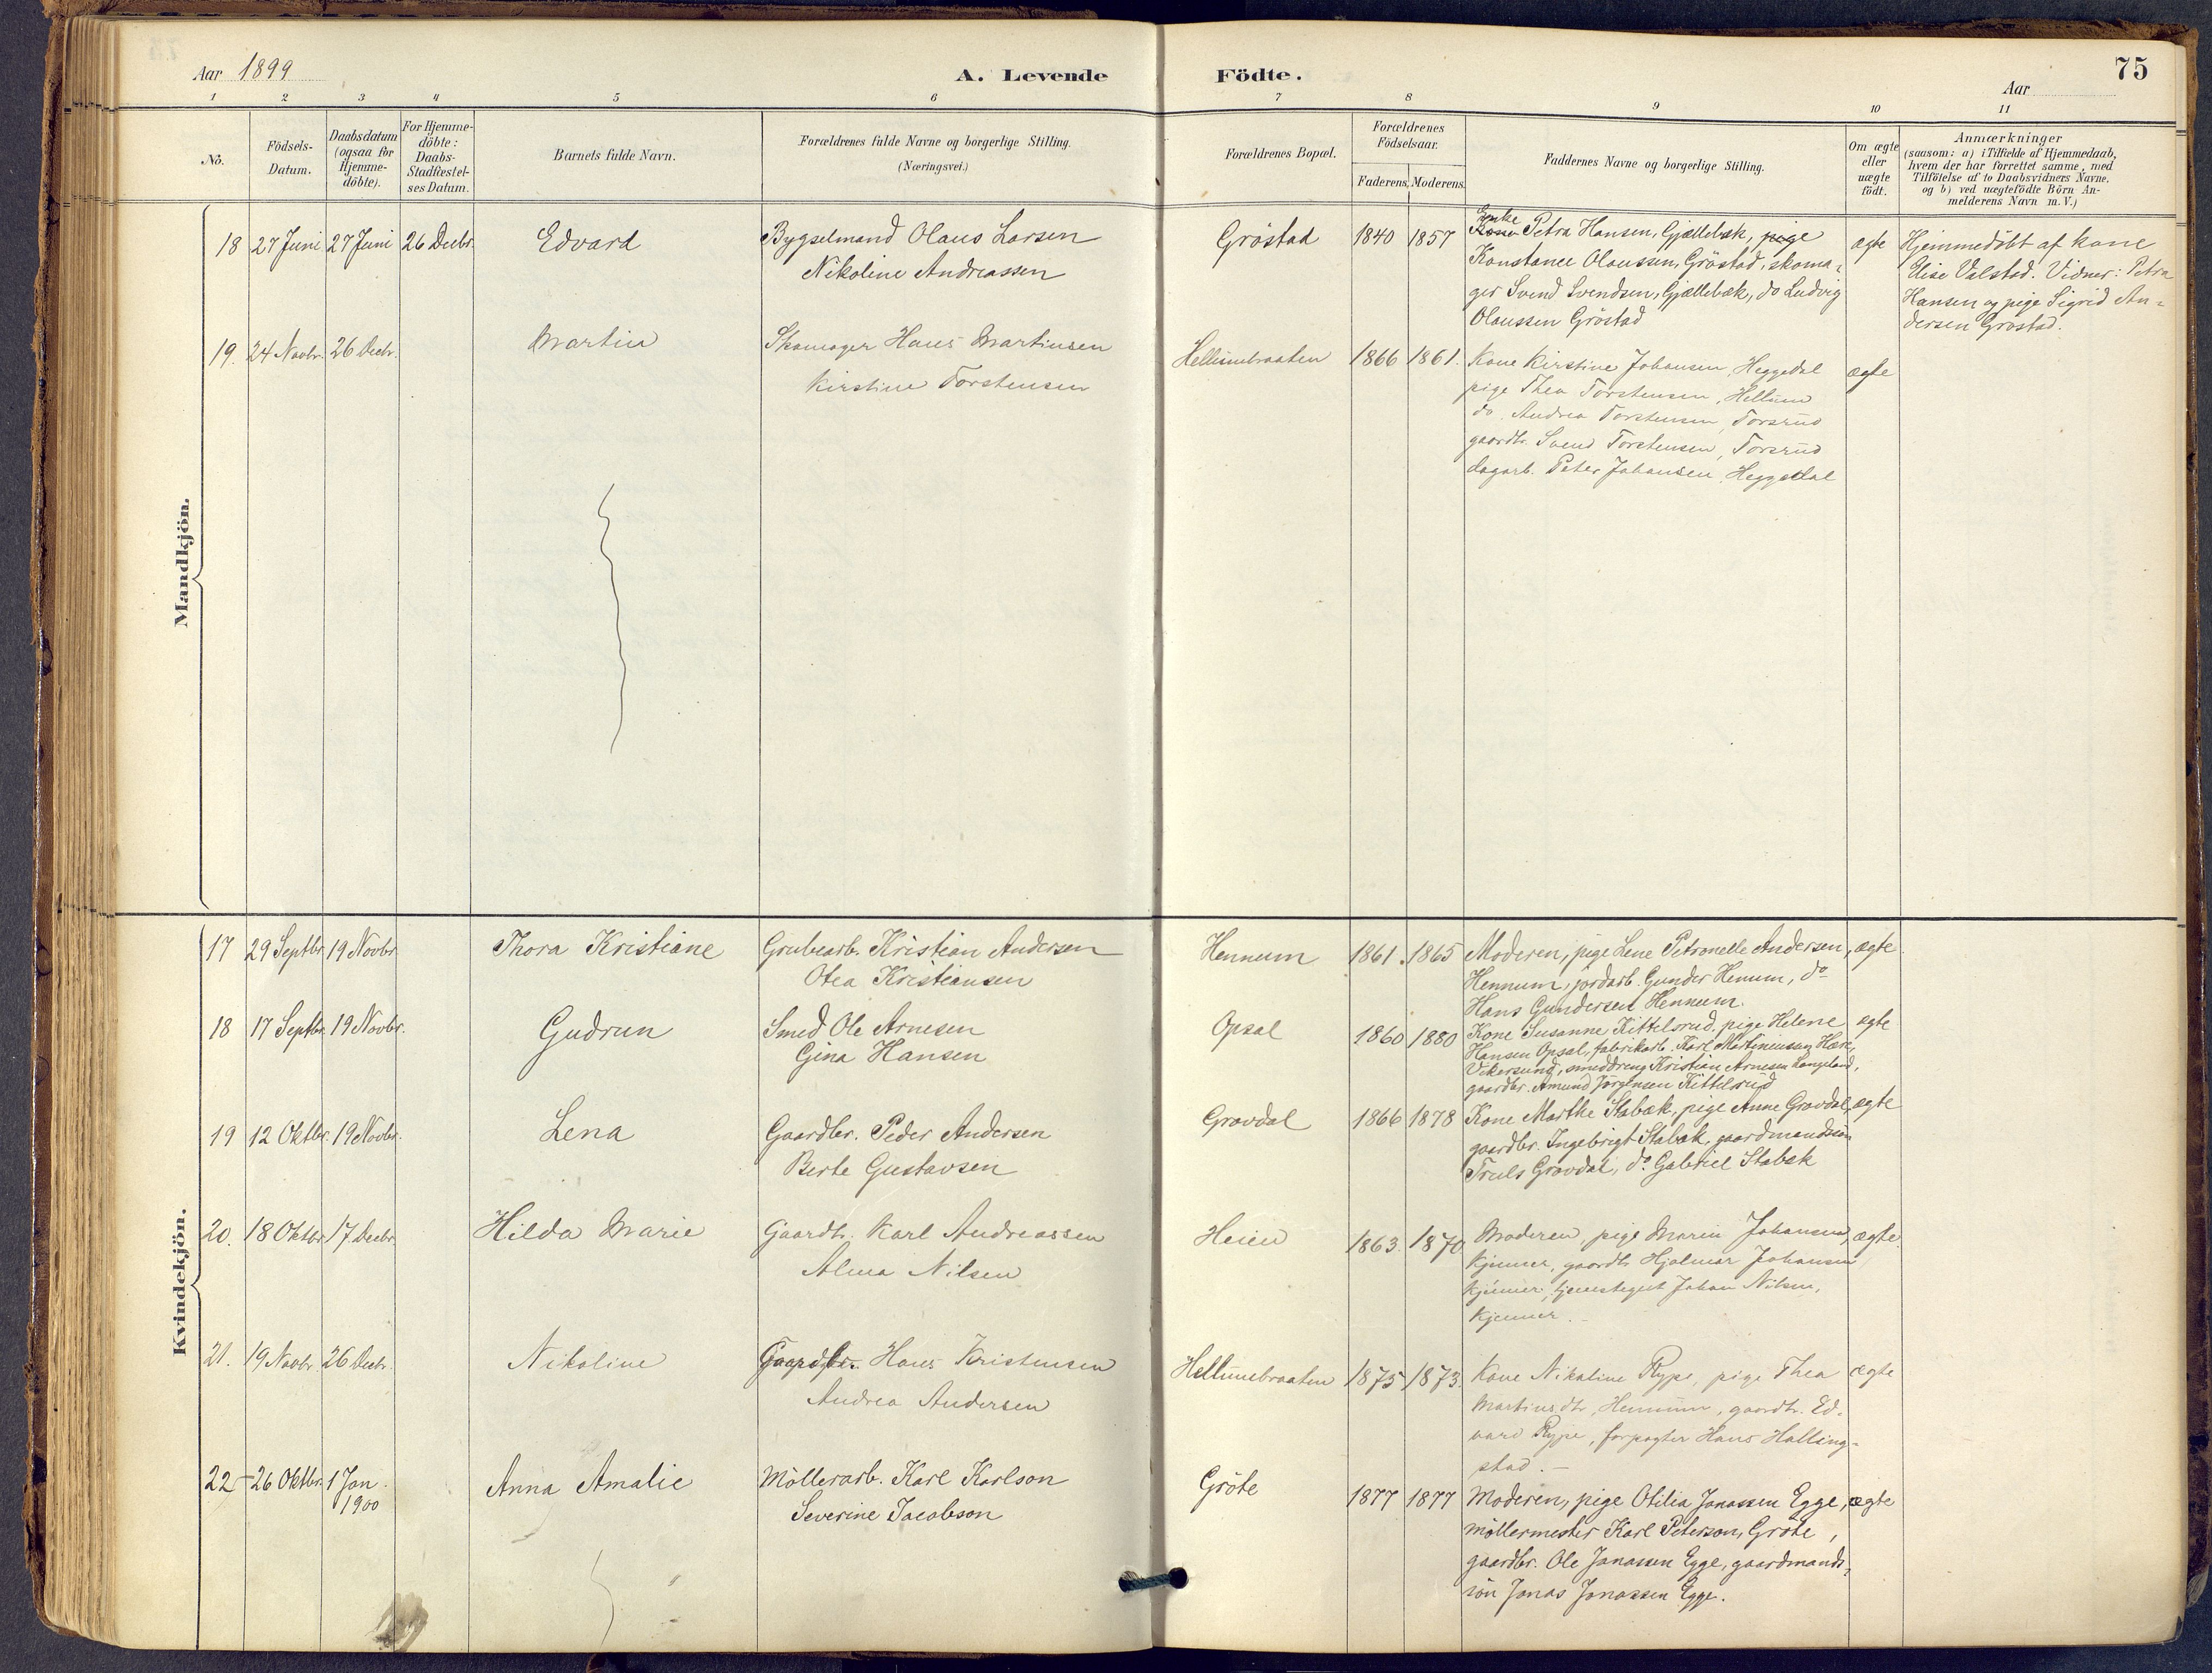 Aar 1899
A. Levende Födte.
Aar
75
1 2 3 4 5 6 7 8 9 10 11
No.
Födsels-
Datum.
Daabsdatum
(ogsaa for
Hjemme-
döbte).
For Hjemme-
döbte:
Daabs-
Stadfæstel-
ses Datum.
Barnets fulde Navn.
Forældrenes fulde Navne og borgerlige Stilling.
(Næringsvei.)
Forældrenes Bopæl.
Forældrenes
Födselsaar.
Faderens. Moderens.
Faddernes Navne og borgerlige Stilling.
Om ægte
eller
uægte
födt.
Anmærkninger
(saasom: a) i Tilfælde af Hjemmedaab,
hvem der har forrettet samme, med
Tilföielse af to Daabsvidners Navne.
og b) ved uægtefödte Börn An-
melderens Navn m.V.)
Mandkjön.
18 27 Juni 27 Juni 26 Decbr. Edvard
Bygselmand Olaus Larsen
Nikoline Andreassen
Gröstad 1840 1857
Enke
Kone Petra Hansen, Gjællebæk, pige
Konstance Olaussen, Gröstad, skoma-
ger Svend Svendsen, Gjællebæk, do Ludvig
Olaussen Gröstad
ægte
Hjemmedöbt af kone
Elise Valstad. Vidner: Petra
Hansen og pige Sigrid An-
dersen Gröstad.
19. 24 Novbr. 26 Decbr. Martin
Skomager Hans Martinsen
Kirstine Torstensen
Hellumbraaten 1866 1861.
Kone Kirstine Johansen, Heggedal
pige Thea Torstensen, Hellum
do. Andrea Torstensen, Torsrud
gaardbr. Svend Torstensen, Torsrud
dagarb. Peter Johansen Heggedal
ægte
Kvindekjön.
17 29 Septbr. 19 Novbr. Thora Kristiane
Grubearb. Kristian Andersen
Otea Kristiansen
Hennum 1861. 1865
Moderen, pige Lene Petronelle Andersen,
Hennum, jordarb. Gunder Henum, do
Hans Gundersen Hennum.
ægte
18 17 Septbr. 19 Novbr. Gudrun
Smed Ole Arnesen
Gina Hansen
Opsal 1860 1880
Kone Susanne Kittelsrud, pige Helene
Hansen Opsal, fabrikarb. Karl Martiniussen Hære,
Vikersund, smeddreng Kristian Arnesen Langeland,
gaardbr. Amund Jörgensen Kittelsrud
ægte
19 12 Oktbr. 19 Novbr. Lena
Gaardbr. Peder Andersen
Berte Gustavsen
Gravdal 1866 1878
Kone Marthe Stabæk, pige Anne Gravdal,
gaardbr. Ingebrigt Stabæk, gaardmandssön
Truls Gravdal, do. Gabriel Stabæk
ægte
20. 18 Oktbr. 17 Decbr. Hilda Marie
Gaardbr. Karl Andreassen
Alma Nilsen
Heien 1863. 1870
Moderen, pige Maren Johansen,
Kjenner, gaardbr. Hjalmar Johansen
Kjenner, tjenestegut Johan Nilsen,
Kjenner.
ægte.
21. 19 Novbr. 26 Decbr. Nikoline
Gaardbr. Hans Kristensen
Andrea Andersen
Hellumbraaten 1875 1873.
Kone Nikoline Rype, pige Thea
Martinsdtr, Hennum, gaardbr. Ed-
vard Rype, forpagter Hans Halling-
stad. —
ægte
22 26 Oktbr. 1 Jan.
1900
Anna Amalie
Möllerarb. Karl Karlson
Severine Jacobson
Gröte 1877 1877
Moderen, pige Otilia Jonassen Egge,
möllermester Karl Peterson, Gröte,
gaardbr. Ole Jonassen Egge, gaardmands-
sön Jonas Jonassen Egge.
ægte